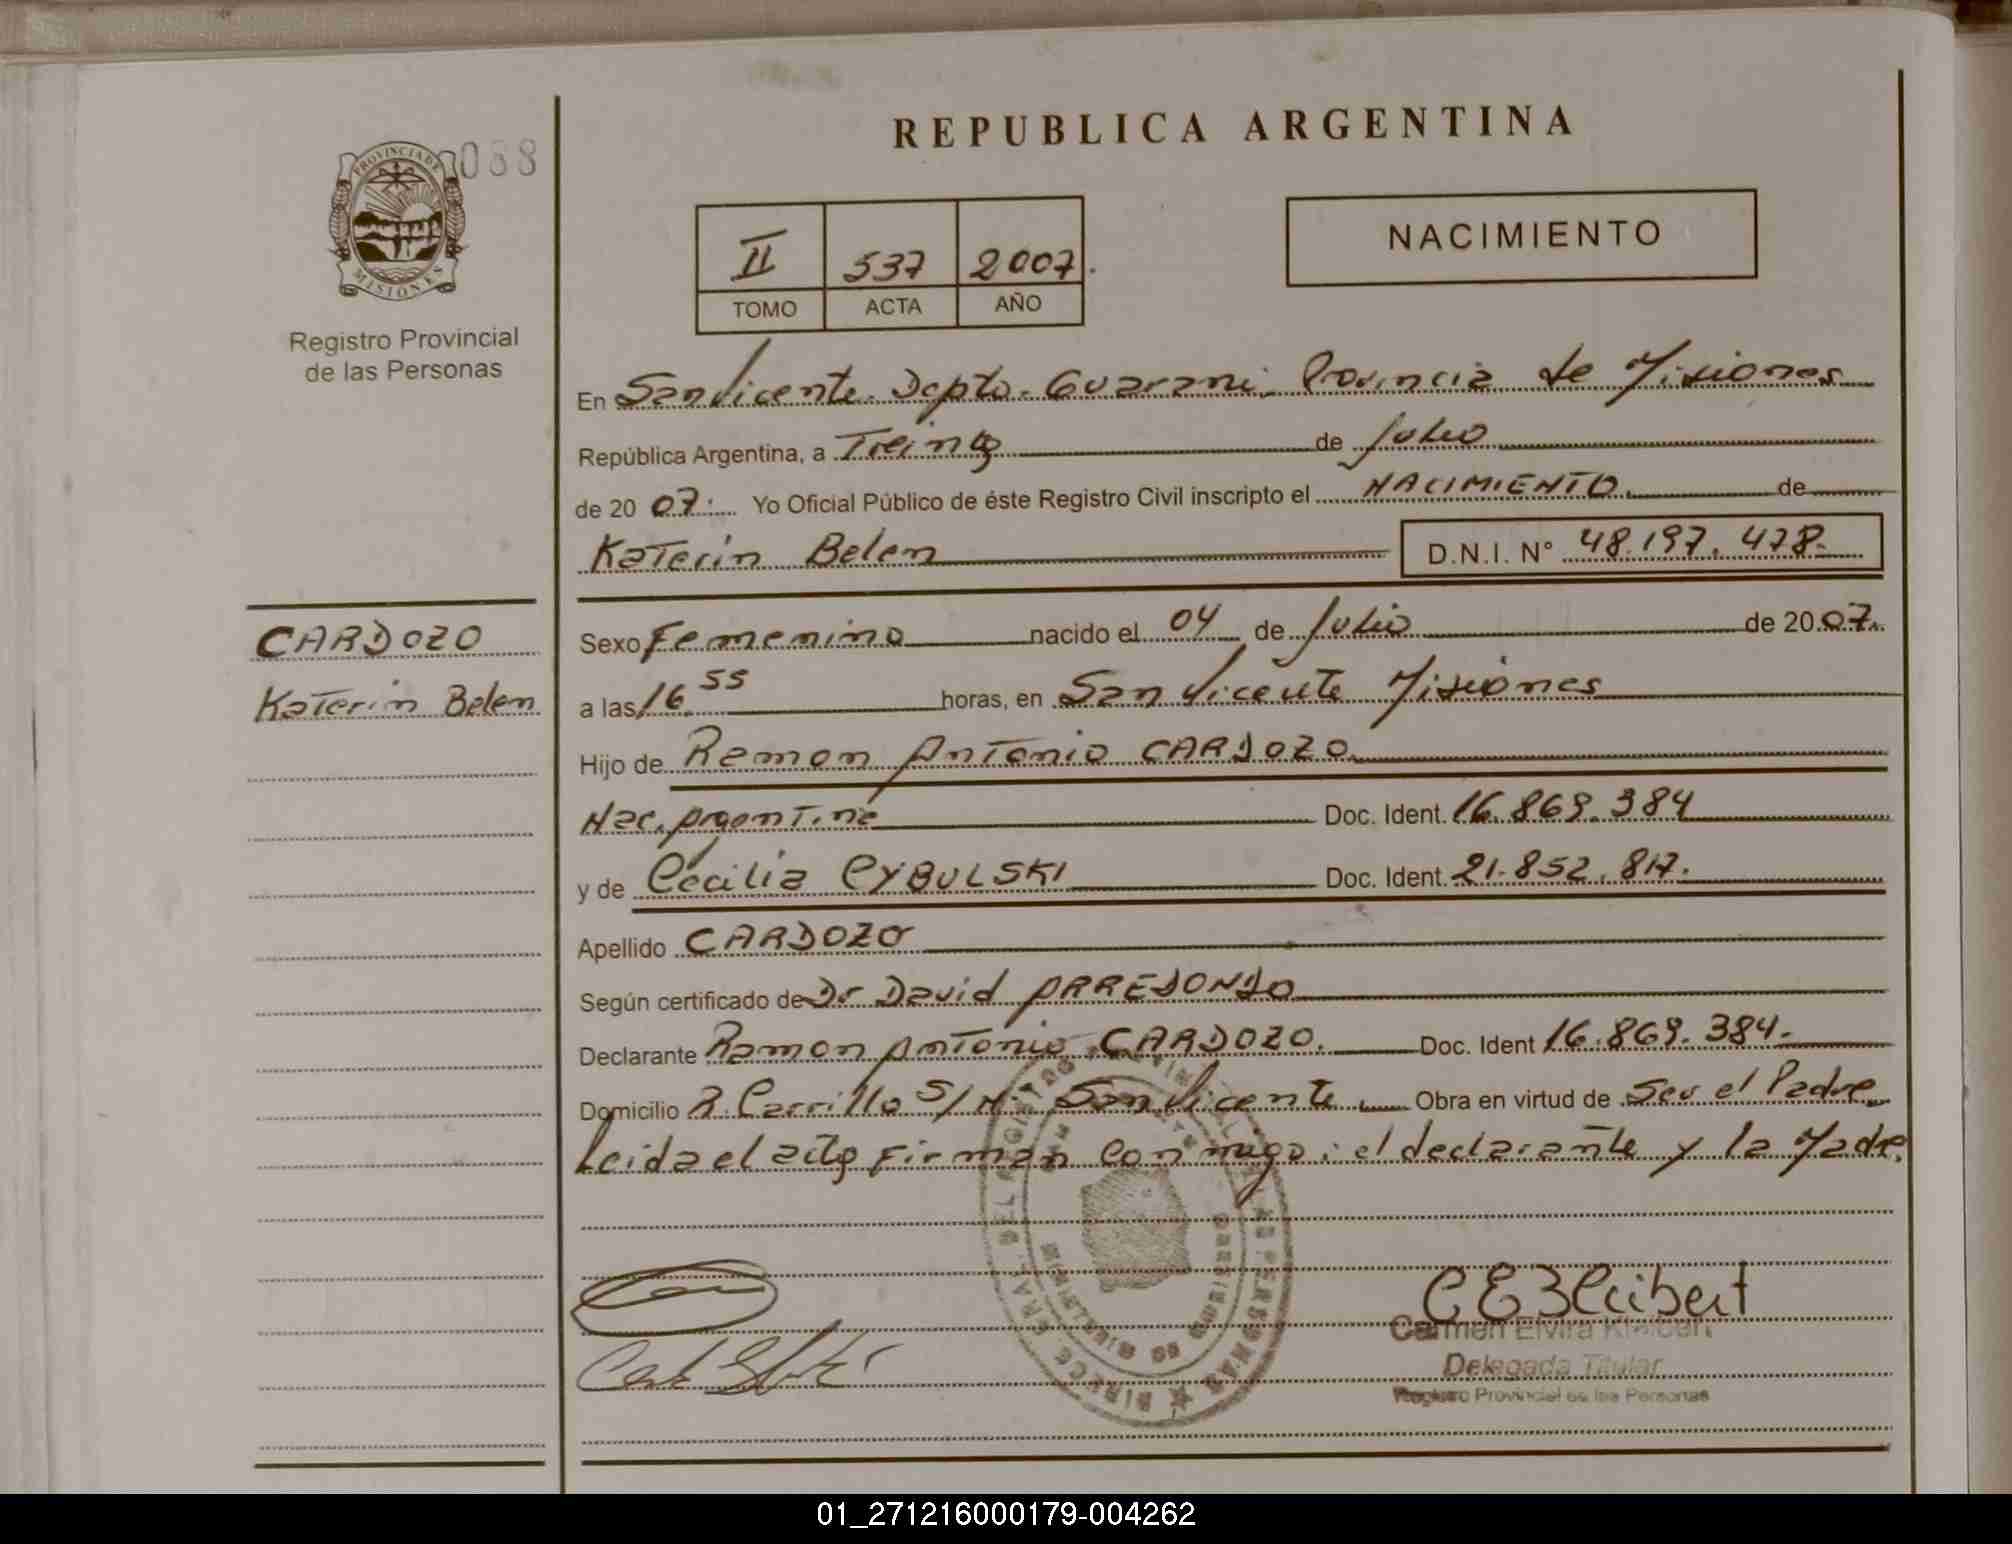 088
PROVINCIA DE
MISIONES
Registro Provincial
de las Personas
REPUBLICA ARGENTINA
II 537 2007.
TOMO ACTA AÑO
NACIMIENTO
En San Vicente. Depto. Guarani. Provincia de Misiones
República Argentina, a Treinta de Julio
de 20 07. Yo Oficial Público de éste Registro Civil inscripto el NACIMIENTO. de
Katerin Belen D.N.I. N° 48.197.478.
CARDOZO
Katerin Belen
Sexo Femenino nacido el 04 de Julio de 20 07.
a las 16.55 horas, en San Vicente Misiones
Hijo de Ramon Antonio CARDOZO
Nac. Argentina Doc. Ident. 16.869.384
y de Cecilia CYBULSKI Doc. Ident. 21.852.817.
Apellido CARDOZO
Según certificado de Dr David ARREDONDO
Declarante Ramon Antonio CARDOZO. Doc. Ident 16.869.384.
Domicilio R. Carrillo S/N° San Vicente. Obra en virtud de Ser el Padre
Leida el acta Firman conmigo: el declarante y la Madre.
Carmen Elvira Kleibert
Delegada Titular
Registro Provincial de las Personas
01_271216000179-004262